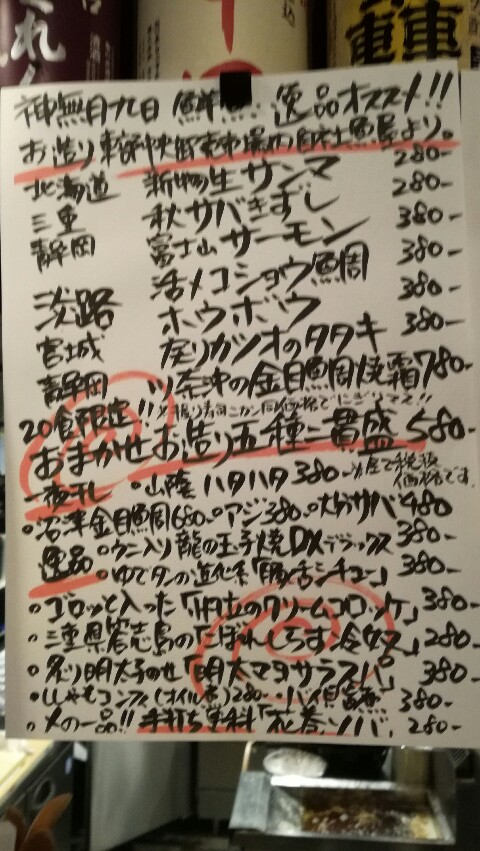 神無月九日 鮮魚 逸品オススメ!!
お造り 東京中央卸売市場内 自社魚屋より。
北海道 新物生サンマ 280-
三重 秋サバきずし 280-
静岡 富士山サーモン 380-
淡路 活メコショウ鯛 380-
ホウボウ 380-
宮城 戻りカツオのタタキ 380-
静岡 沖の金目鯛焼霜 780-
20食限定!! にぎりマス!!
おまかせお造り五種二貫盛 580-
一夜干し ・山陰 ハタハタ 380- 全て税抜価格です
・沼津金目鯛 680- ・アジ 380- ・大分サバ 480
逸品 ・ウニ入り龍の玉子焼DXデラックス 380-
・ゆでタンの進化系「豚舌シチュー」 380-
・ゴロッと入った「帆立のクリームコロッケ」 380-
・三重県答志島の「こぼれしらす冷奴」 280-
・炙り明太子のせ「明太マヨサラスパ」 380-
・ししゃもコンフィ(オイル煮) 280- ・バイ貝 380-
・〆の一品!! 手打ち 「花巻ソバ」 280-